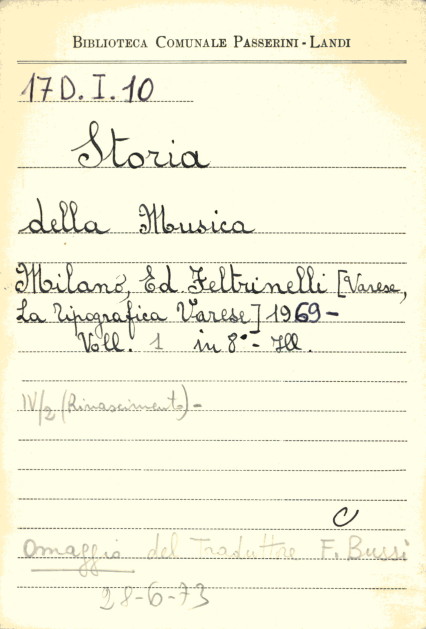 BIBLIOTECA COMUNALE PASSERINI-LANDI
17D.I.10
Storia
della Musica
Milano, Ed. Feltrinelli [Varese,
La Tipografica Varese] 1969-
Voll. 1 in 8°- Ill.
IV/2 (Rinascimento)-
C
Omaggio del Traduttore F. Bussi
28-6-73